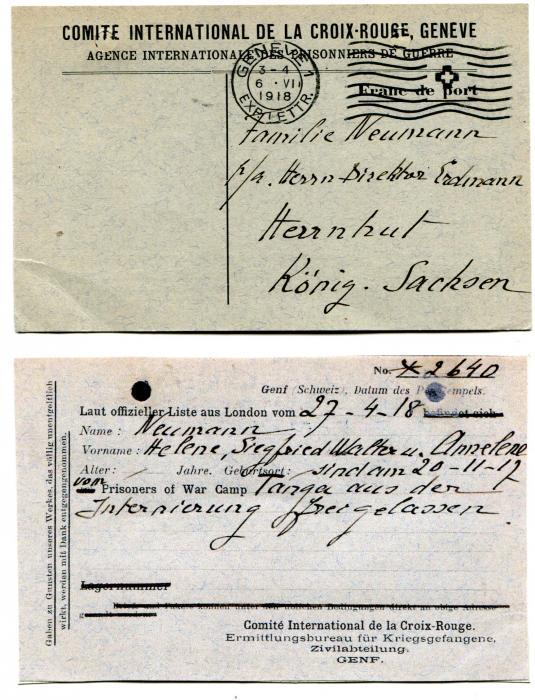 COMITE INTERNATIONAL DE LA CROIX-ROUGE, GENEVE
AGENCE INTERNATIONALE DES PRISONNIERS DE GUERRE
GENÈVE 1
3-4
6 · VII
1918
EXP. LETTR.
Franc de port
Familie Neumann
p/a. Herrn Direktor Erdmann
Herrnhut
König. Sachsen
No. 2640
Genf (Schweiz), Datum des Poststempels.
Laut offizieller Liste aus London vom 27-4-18 befindet sich
Name: Neumann,
Vorname: Helene, Siegfried Walter u. Annelene
Alter: Jahre. Geburtsort: sind am 20-11-17
vom Prisoners of War Camp Tanga aus der
Internierung freigelassen.
Lagernummer
direkt an obige Adresse
Comité International de la Croix-Rouge.
Ermittlungsbureau für Kriegsgefangene,
Zivilabteilung.
GENF.
Gaben zu Gunsten unseres Werkes, das völlig unentgeltlich
wirkt, werden mit Dank entgegengenommen.